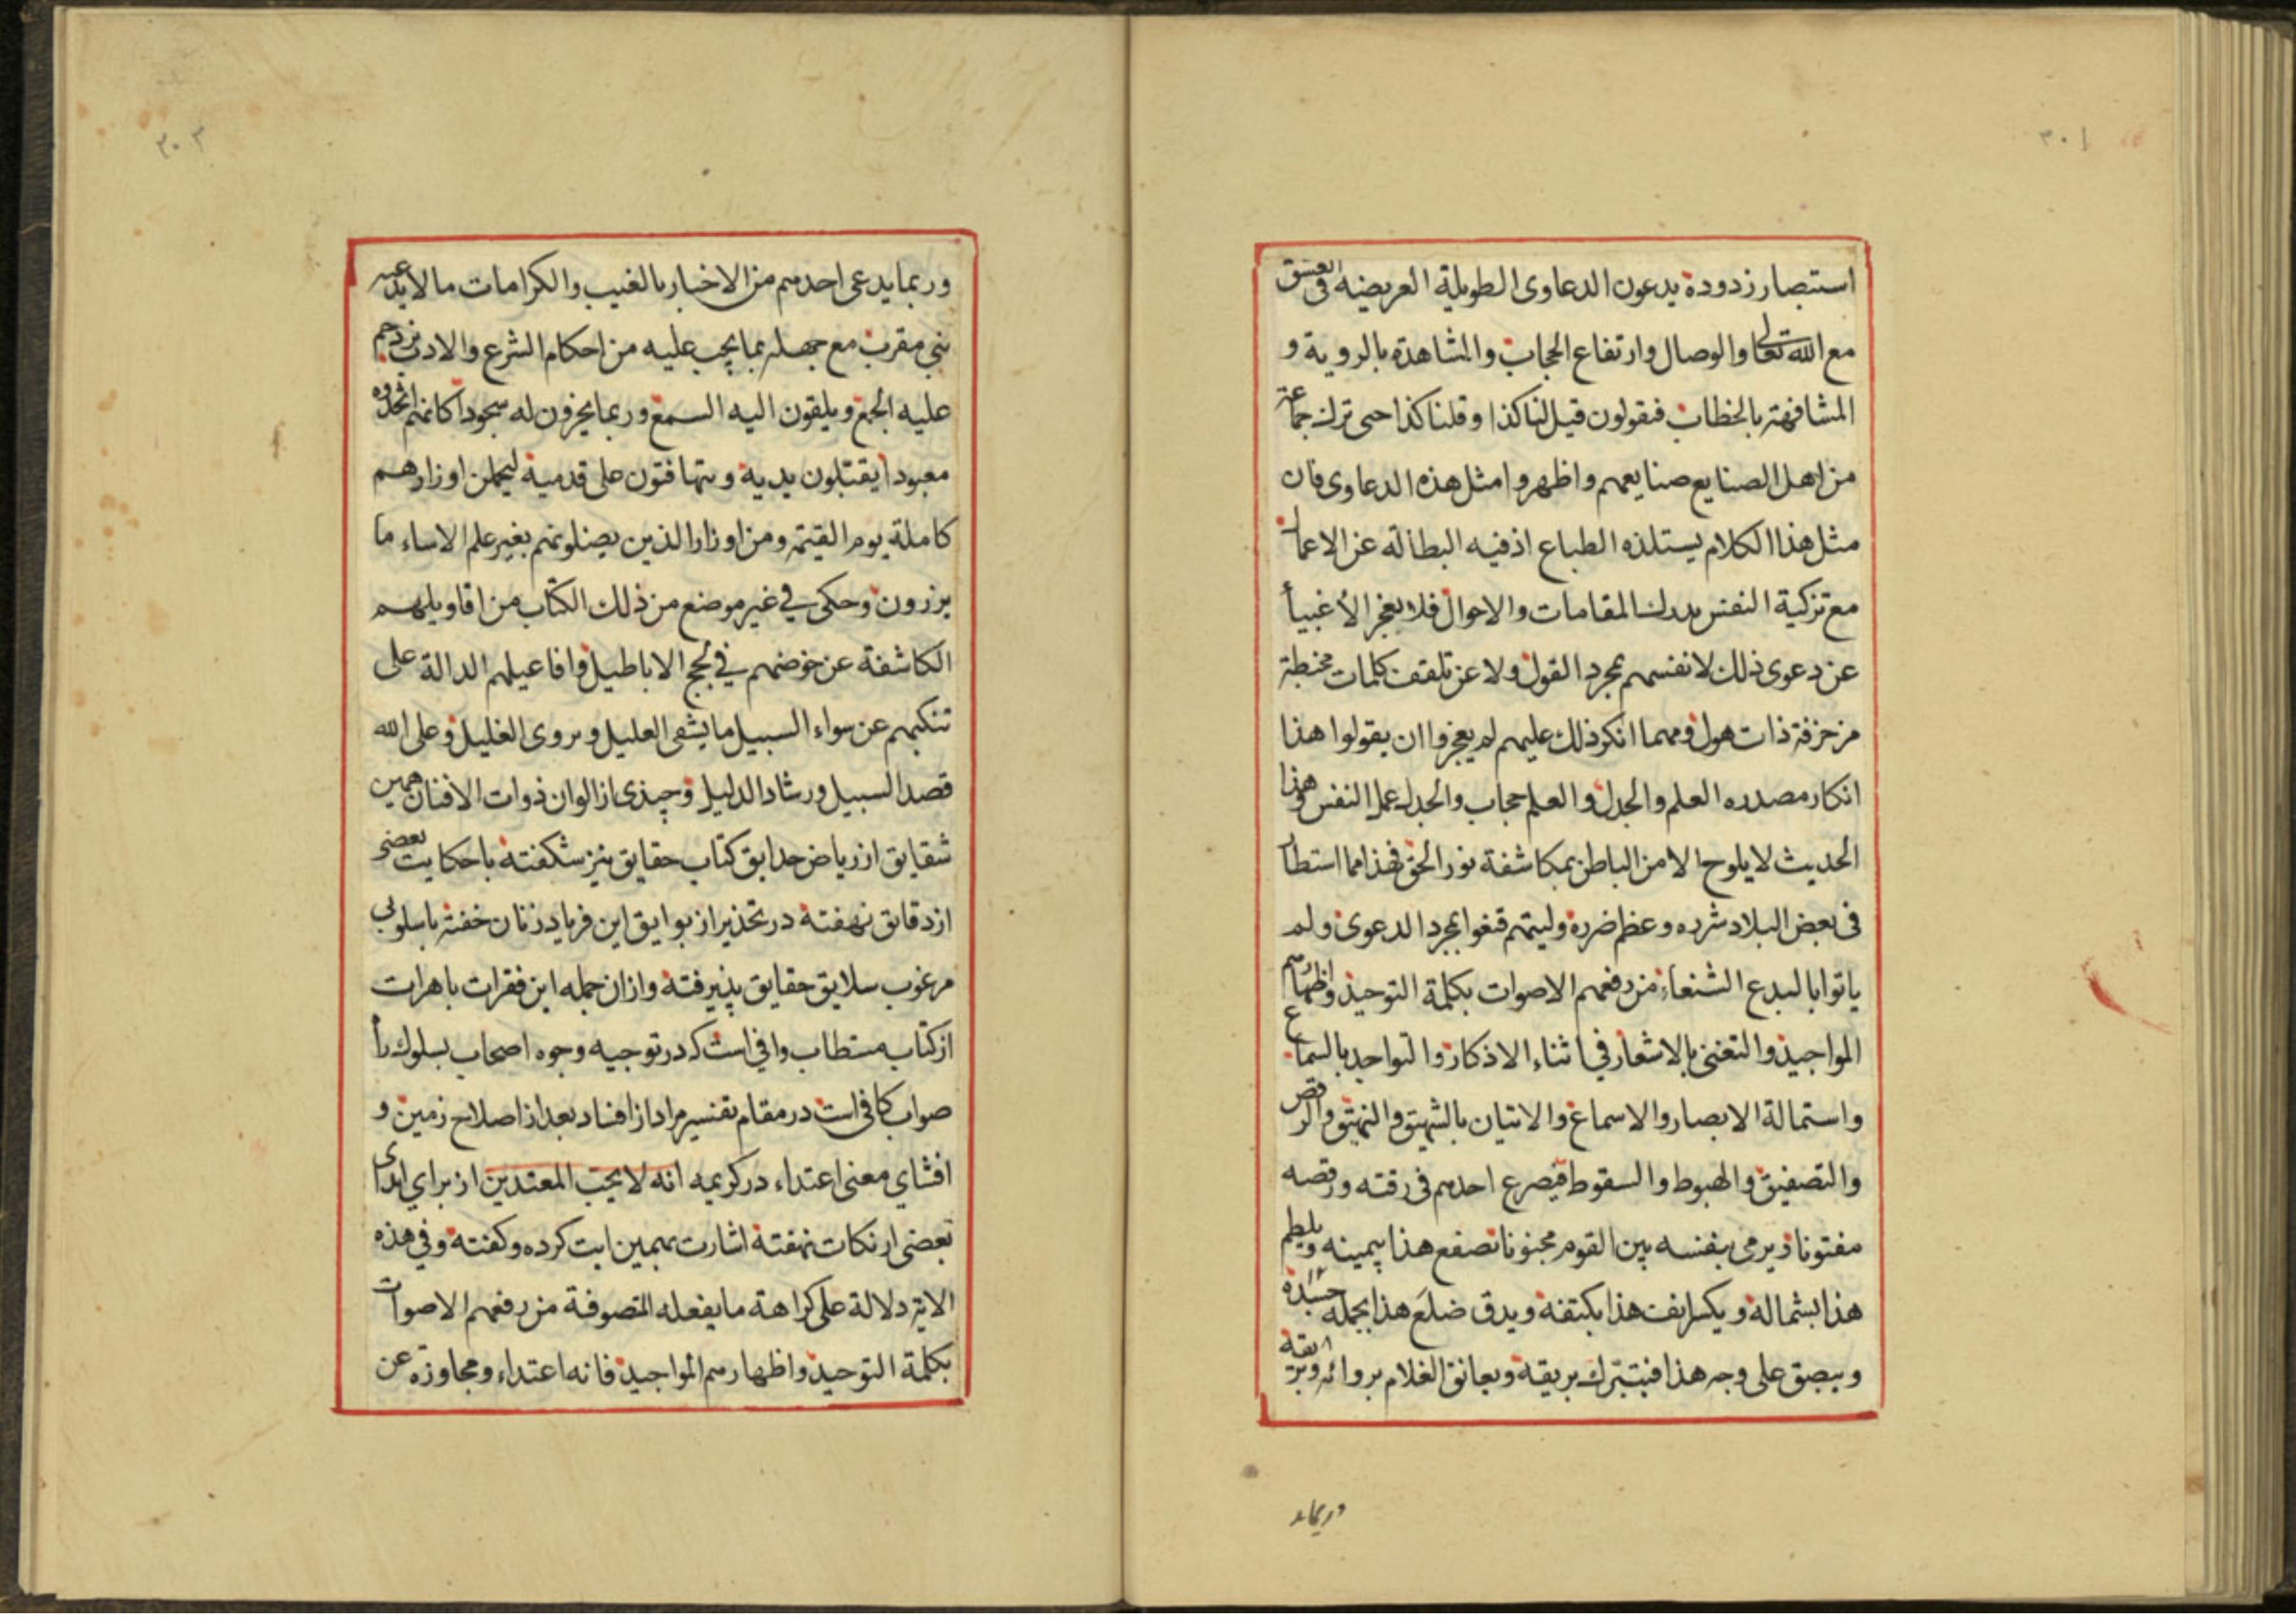 ٣٠١
استبصار زد ودة يدعون الدعاوى الطويلة العريضه فى العشق
مع الله تعالى والوصال وارتفاع الحجاب والمشاهدة بالروية و
المشافهة بالخطاب فيقولون قيل لنا كذا وقلنا كذا حتى ترك جماعة
من اهل الصنايع صنايعهم واظهروا مثل هذه الدعاوى فان
مثل هذا الكلام يستلذه الطباع اذ فيه البطالة عن الاعمال
مع تزكية النفس بدرك المقامات والاحوال فلا يعجز الاغبيأ
عن دعوى ذلك لانفسهم بمجرد القول ولا عن تلقف كلمات مخبطة
مزخرفة ذات هول ومهما انكر ذلك عليهم لم يعجزوا ان يقولوا هذا
انكار مصدره العلم والجدل والعلم حجاب والجدل عمل النفس وهذا
الحديث لا يلوح الا من الباطن بمكاشفة نور الحق فهذا مما استطار
فى بعض البلاد شرره وعظم ضرره وليتهم قنعوا بمجرد الدعوى ولم
ياتوا بالبدع الشنعاء من رفعهم الاصوات بكلمة التوحيد واظهارهم
المواجيد والتغنى بالاشعار في اثناء الاذكار والتواجد بالسماع
واستمالة الابصار والاسماع والاتيان بالشهيق والنهيق والرقص
والتصفيق والهبوط والسقوط فيصرع احدهم فى رقته ورقصه
مفتونا ويرمى بنفسه بين القوم مجنونا تصفع هذا بيمينه ويلطم
هذا بشماله ويكسر انف هذا بكتفه ويدق ضلع هذا بجمله جسده
ويبصق على وجه هذا فيتبرك بريقه ويعانق الغلام بروائه وبريقه
وربما يد
٣٠٢
وربما يدعى احدهم من الاخبار بالغيب والكرامات ما لا يدعيه
نبى مقرب مع جهله بما يجب عليه من احكام الشرع والادب يزدحم
عليه الجمع ويلقون اليه السمع وربما يخرون له سجودا كانهم اتخذوه
معبودا يقبلون يديه ويتهافتون على قدميه ليحملن اوزارهم
كاملة يوم القيمة ومن اوزار الذين يضلونهم بغير علم الا ساء ما
يزرون وحكى في غير موضع من ذلك الكتاب من اقاويلهم
الكاشفة عن خوضهم في لجج الاباطيل وافاعيلهم الدالة على
تنكبهم عن سواء السبيل ما يشفى العليل ويروى الغليل وعلى الله
قصد السبيل ورشاد الدليل وچيذى از الوان ذوات الافنان همين
شقايق از رياض حدايق كتاب حقايق نيز شكفته با حكايت بعضى
از دقايق نهفته در تحذير از بوايق اين فرياد زنان خفته باسلوبى
مرغوب سلايق حقايق پذيرفته وازان جمله اين فقرات باهرات
از كتاب مستطاب وافى است كه در توجيه وجوه اصحاب بسلوك رأ
صواب كافى است در مقام تفسير مراد از افساد بعد از اصلاح زمين و
افشاي معنى اعتداء در كريمه انه لا يحب المعتدين از براي ابداى
بعضى از نكات نهفته اشارت بهمين ايت كرده وگفته وفي هذه
الاية دلالة على كراهة ما يفعله المتصوفة من رفعهم الاصوات
بكلمة التوحيد واظهارهم المواجيد فانه اعتداء ومجاوزة عن